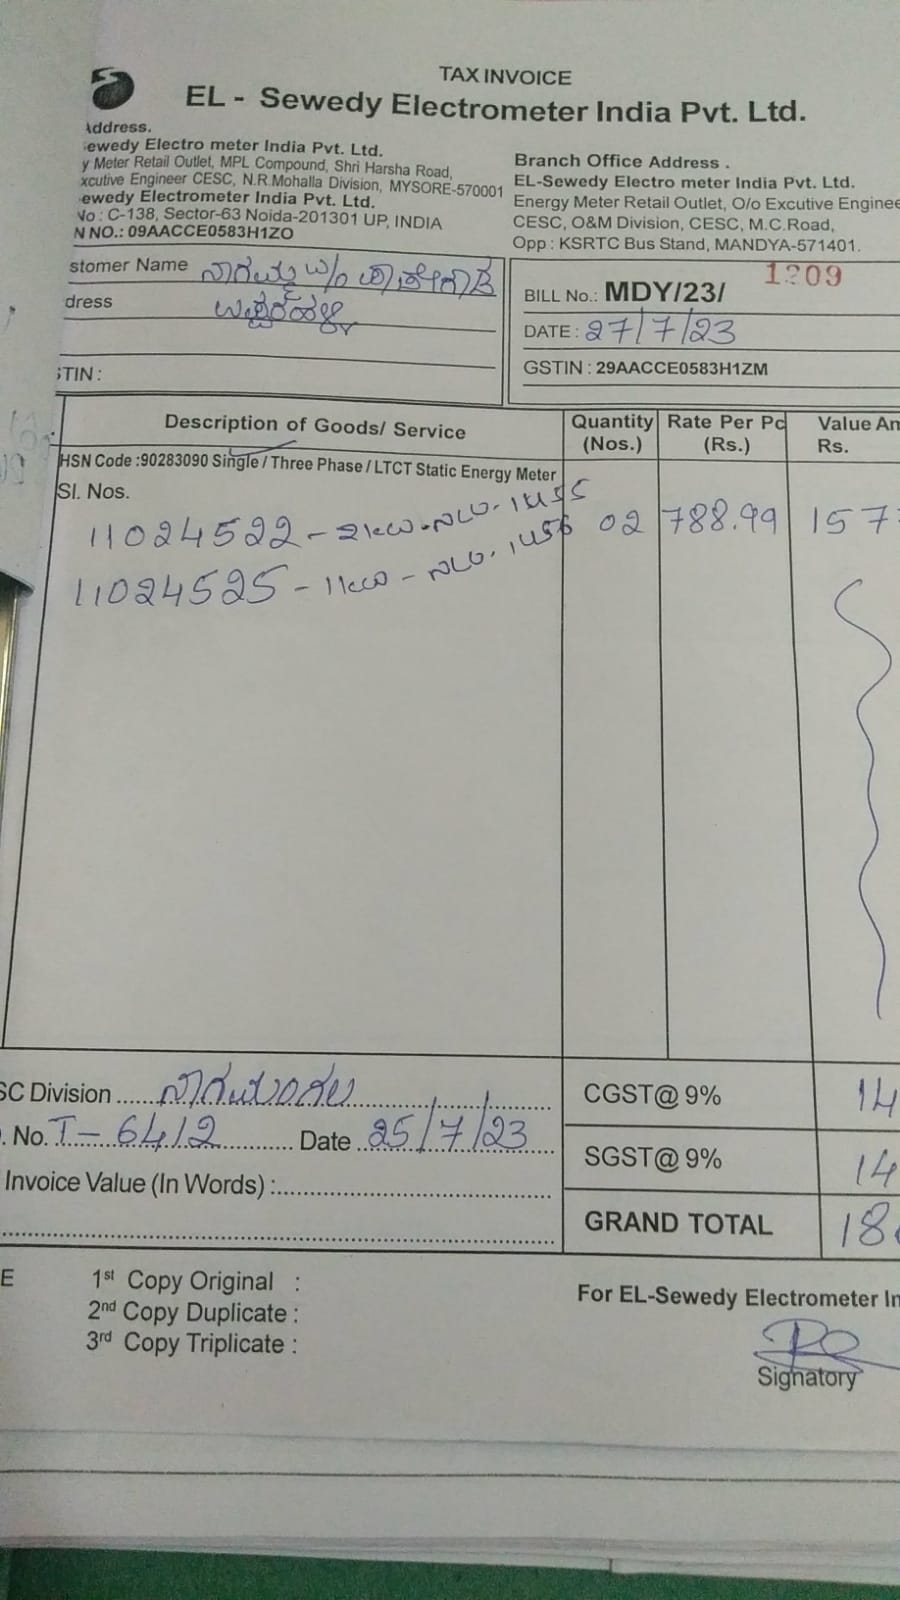 TAX INVOICE
EL - Sewedy Electrometer India Pvt. Ltd.
Address.
ewedy Electro meter India Pvt. Ltd.
y Meter Retail Outlet, MPL Compound, Shri Harsha Road,
xcutive Engineer CESC, N.R.Mohalla Division, MYSORE-570001
ewedy Electrometer India Pvt. Ltd.
No : C-138, Sector-63 Noida-201301 UP, INDIA
N NO.: 09AACCE0583H1ZO
Branch Office Address .
EL-Sewedy Electro meter India Pvt. Ltd.
Energy Meter Retail Outlet, O/o Excutive Enginee
CESC, O&M Division, CESC, M.C.Road,
Opp : KSRTC Bus Stand, MANDYA-571401.
stomer Name ನಾಗಮ್ಮ W/o
dress
STIN :
BILL No.: MDY/23/ 1209
DATE : 27/7/23
GSTIN : 29AACCE0583H1ZM
Description of Goods/ Service Quantity (Nos.) Rate Per Pc (Rs.) Value Am Rs.
HSN Code :90283090 Single / Three Phase / LTCT Static Energy Meter
Sl. Nos.
11024522 - 2KW - 1455 02 788.99 157
11024525 - 1KW - 1456
SC Division ...... ನಾಗಮಂಗಲ
. No. T - 6412 Date 25/7/23
Invoice Value (In Words) :
CGST@ 9% 14
SGST@ 9% 14
GRAND TOTAL 18
E 1st Copy Original :
2nd Copy Duplicate :
3rd Copy Triplicate :
For EL-Sewedy Electrometer In
Signatory